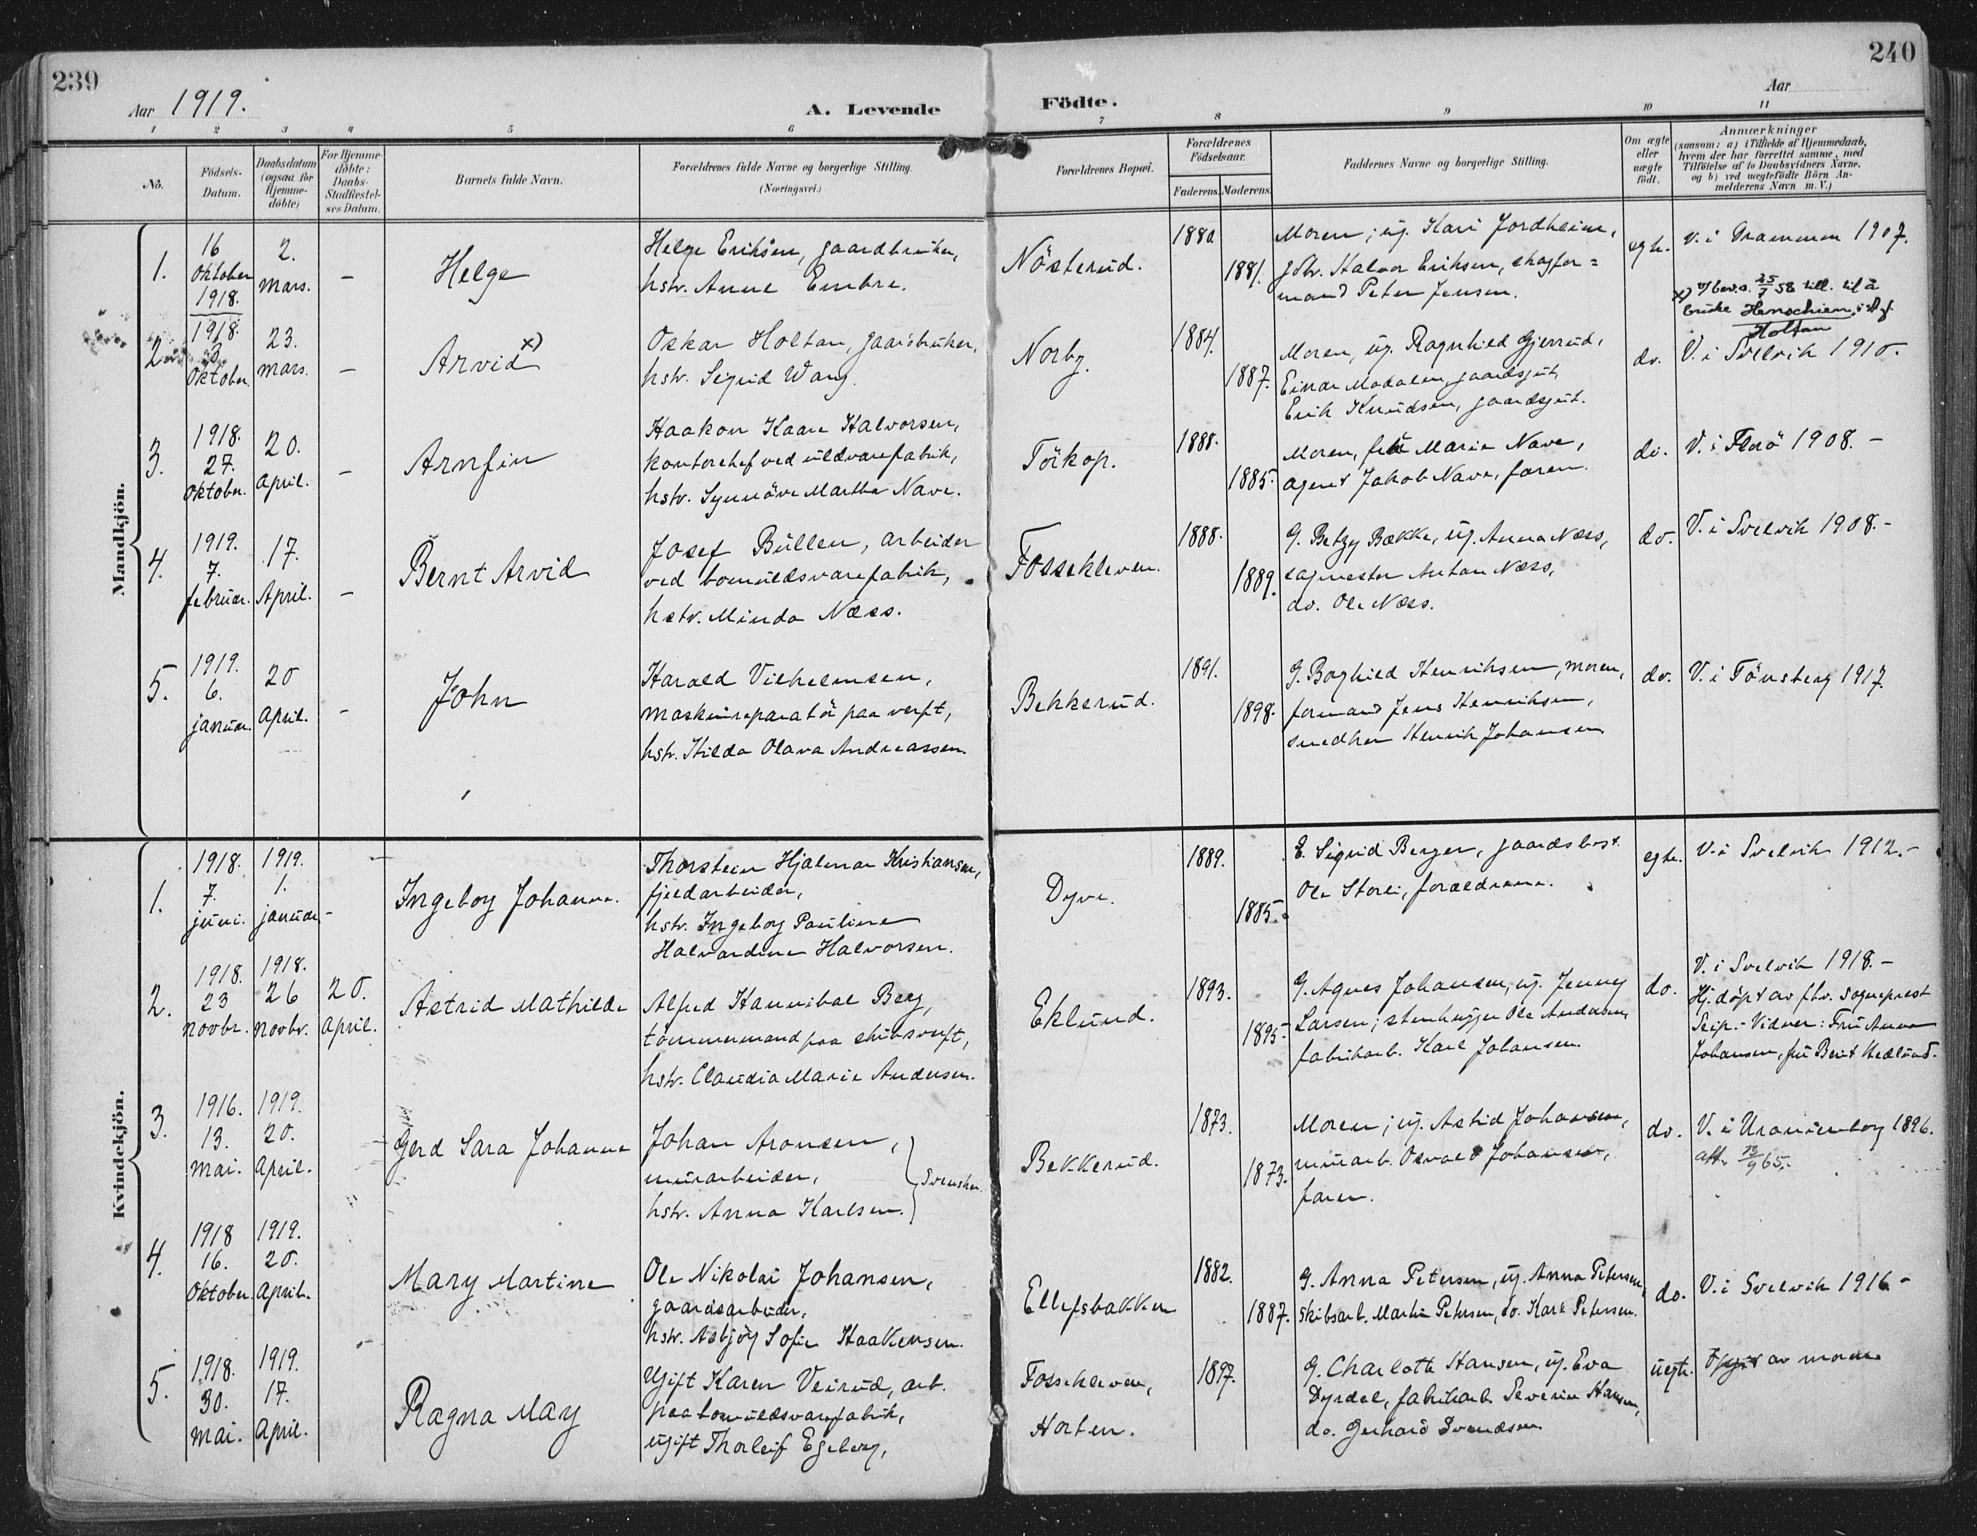 239
Aar 1919.
A. Levende
1 2 3 4 5 6
No.
Födsels-Datum.
Daabsdatum (ogsaa for Hjemme-döbte)
For Hjemme-döbte: Daabs-Stadfæstel-ses Datum.
Barnets fulde Navn.
Forældrenes fulde Navne og borgerlige Stilling.
(Næringsvei.)
Mandkjön.
1.
16 Oktober 1918.
2. Mars.
-
Helge
Helge Eriksen, gaardbruker,
hstr. Anne Embre.
2.
1918 3 Oktober.
23. Mars.
-
Arvid x)
Oskar Holtan, gaardbruker,
hstr. Sigrid Wang.
3.
1918. 27. Oktober.
20. April.
-
Arnfin
Haakon Kaare Halvorsen,
kontorchef ved uldvarefabrik,
hstr. Synnöve Martha Nave.
4.
1919. 7. februar.
17. April.
-
Bernt Arvid
Josef Bullen, arbeider
ved bomuldsvarefabrik,
hstr. Minda Næss.
5.
1919. 6. januar.
20 April.
-
John
Harald Vilhelmsen,
maskinreparatör paa verft,
hstr. Hilda Olava Andreassen.
Kvindekjön.
1.
1918. 7. juni.
1919. 1. januar
-
Ingeborg Johanne.
Thorstein Hjalmar Kristiansen,
fjeldarbeider,
hstr. Ingeborg Pauline
Halvardine Halvorsen.
2.
1918. 23 Novbr.
1918. 26 Novbr.
20. April.
Astrid Mathilde
Alfred Hannibal Berg,
tömmermand paa skibsverft,
hstr. Claudia Marie Andersen.
3.
1916. 13. Mai.
1919. 20. April.
Gerd Sara Johanne
Johan Aronsen,
murarbeider,
hstr. Anna Karlsen.
Svensker.
4.
1918 16. Oktober
1919. 20. April.
Mary Martine
Ole Nikolai Johansen,
gaardsarbeider,
hstr. Asbjög Sofie Haakensen.
5.
1918. 30. Mai.
1919. 17. April.
Ragna May
Ugift Karen Veirud, arb.
paa bomuldsvarefabrik,
ugift Thorleif Egeberg,
240
Aar
Födte.
7 8 9 10 11
Forældrenes Bopæl.
Forældrenes Födselsaar.
Faderens. Moderens.
Faddernes Navne og borgerlige Stilling.
Om ægte eller uægte födt.
Anmærkninger
(saasom: a) i Tilfælde af Hjemmedaab,
hvem der har forrettet samme, med
Tilföielse af to Daabsvidners Navne.
og b) ved uegtefödte Börn An-
melderens Navn m. V.)
Nösterud.
1880.
1881.
Moren; ug. Kari Jordheim,
gbr. Halvor Eriksen, skogfor=
mand Peter Jensen.
egte.
V. i Drammen 1907.
x) bev. 25/7 58 till. til å
bruke Henschien i st. f.
Holtan
Norby.
1884.
1887.
Moren, ug. Ragnhild Gjerrud,
Einar Modalen, gaardsgut,
Erik Knudsen, gaardsgut.
do.
V. i Svelvik 1910.
Törkop.
1888.
1885.
Moren, fru Marie Nave,
agent Jakob Nave, faren.
do.
V. i Florö 1908. -
Fossekleven.
1888.
1889.
G. Betzy Bække, ug. Anna Næss,
sagmester Anton Næss,
do. Ole Næss.
do.
V. i Svelvik 1908. -
Bekkerud.
1891.
1898.
G. Borghild Henriksen, moren,
formand Jens Henriksen,
Henrik Johansen
do.
V. i Tönsberg 1917.
Dyve.
1889.
1885.
E. Sigrid Berger, gaardsbest.
Ole Storli, forældrene.
egte.
V. i Svelvik 1912. -
Eklund.
1893.
1895
G. Agnes Johansen, ug. Jenny
Larsen; stenhugger Ole Andersen,
fabrikarb. Karl Johansen.
do.
V. i Svelvik 1918. -
Hj. döpt av fhv. sogneprest
Seip. - Vidner: Fru Anna
Johansen, fru Berit Hedlund.
Bekkerud.
1873.
1873.
Moren; ug. Astrid Johansen,
murarb. Osvald Johansen,
faren.
do.
V. i Uranienborg 1896.
att. 13/9 65.
Ellefsbakken
1882.
1887.
G. Anna Petersen, ug. Anna Petersen,
skibsarb. Martin Petersen, do. Karl Petersen.
do.
V. i Svelvik 1916 -
Fossekleven,
Horten.
1897.
G. Charlotte Hansen, ug. Eva
Dyrdal, fabrikarb. Severin Hansen,
do. Gerhard Svendsen
uegte.
Opgit av moren